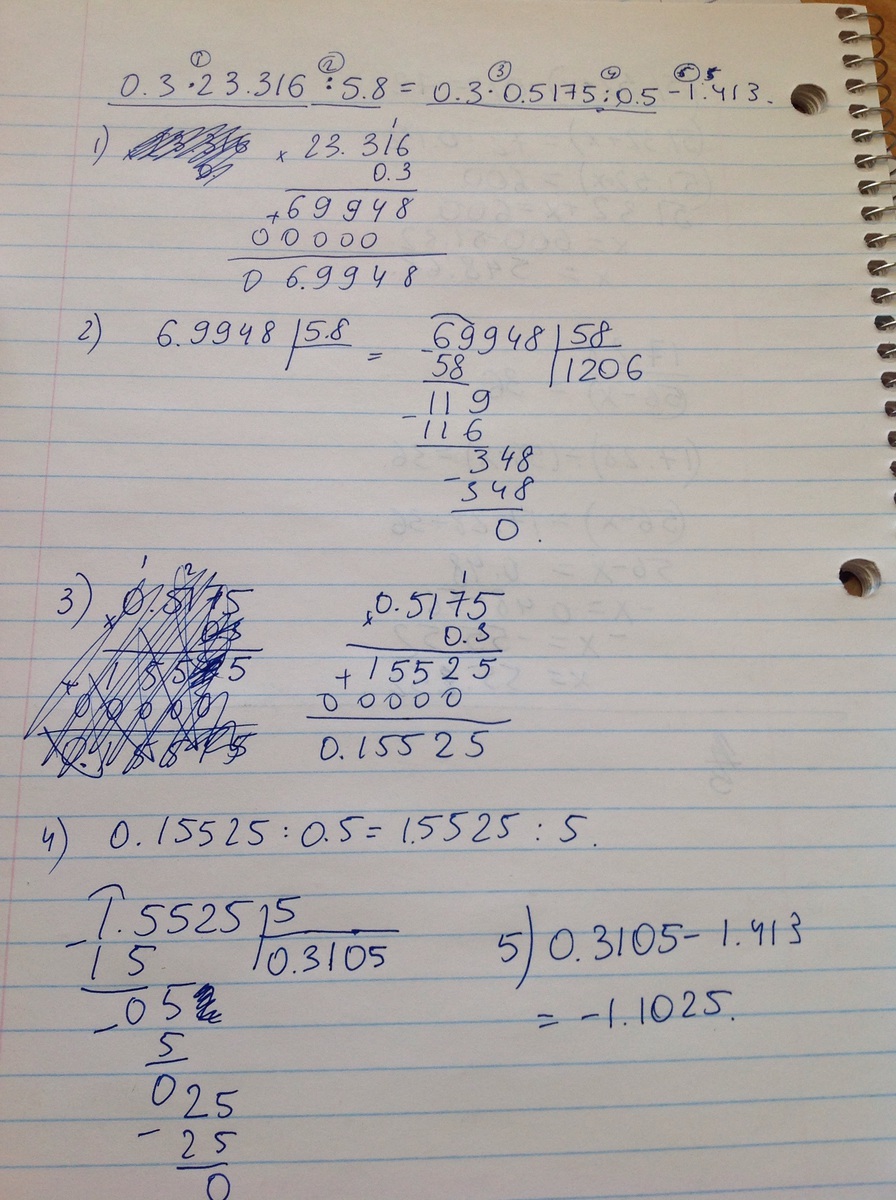 0.3 · 23.316 : 5.8 = 0.3 · 0.5175 : 0.5 - 1.413.
1) × 23.316
0.3
+ 69948
00000
0 6.9948
2) 6.9948 | 5.8 = 69948 | 58
- 58 | 1206
119
- 116
348
- 348
0.
3) × 0.5175
0.3
+ 15525
00000
0.15525
4) 0.15525 : 0.5 = 1.5525 : 5.
1.5525 | 5
- 15 | 0.3105
05
- 5
025
- 25
0
5) 0.3105 - 1.413
= -1.1025.